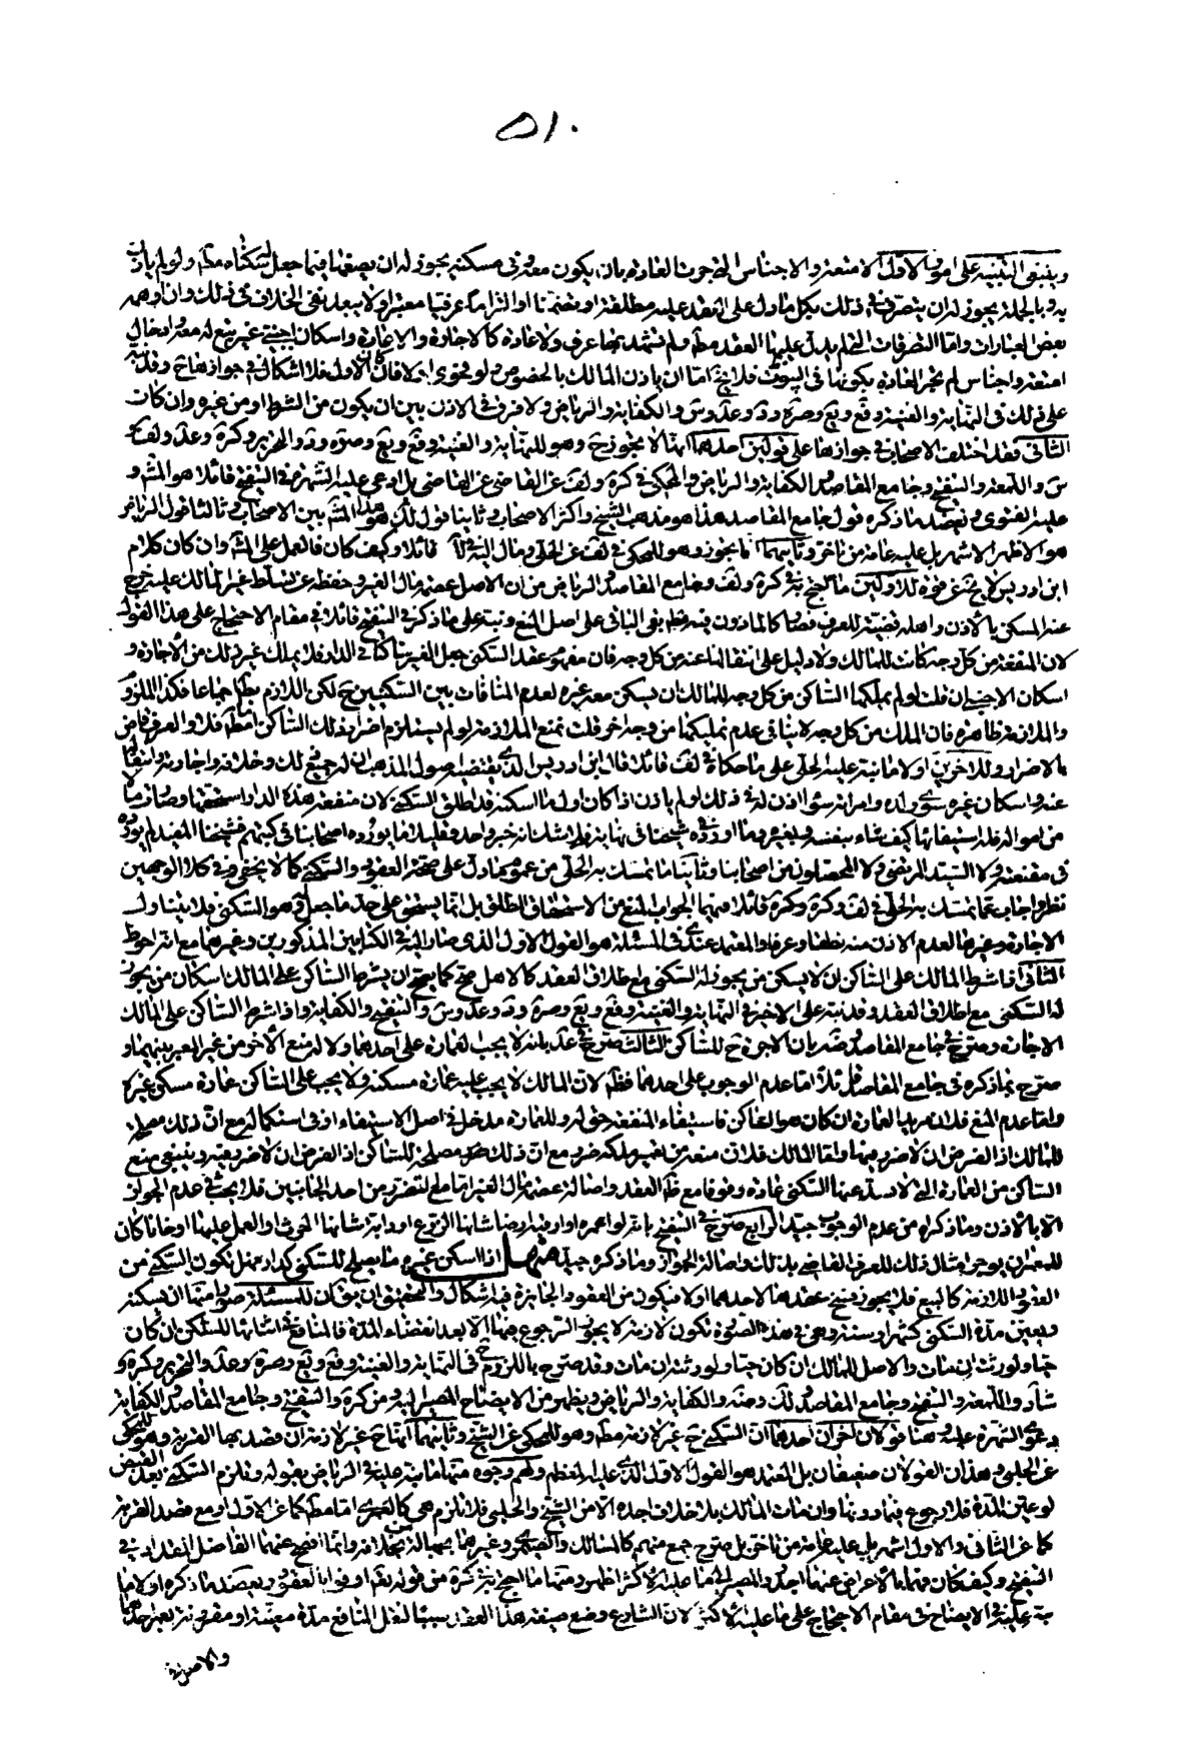 ٥١٠
وينبغي التنبيه على امور الاول الامتعة والاجناس التي جرت العادة بان يكون معه في مسكنه يجوز له ان يضعها فيما جعل له سكناه مطلقا ولو لم ياذن
به وبالجملة يجوز له ان يتصرف في ذلك بكل ما دل على العقد عليه مطابقة او تضمنا او التزاما عرفيا معتبرا ولا يبعد نفي الخلاف في ذلك وان اوهمه
بعض العبارات واما التصرفات التي لم يدل عليها العقد مطلقا ولم تشهد بها عرف ولا عادة كالاجارة والاعارة واسكان اجنبي غير تبع له معه وادخال
امتعة واجناس لم تجر العادة بكونها في البيوت فلا يخ اما ان ياذن المالك بالخصوص ولو بفحوى او لا فان كان الاول فلا اشكال في جوازها ح وقد نبه
على ذلك في النهاية والغنية وقع ويع وصره ود وعد وس والكفاية والرياض ولا فرق في الاذن بين ان يكون من الشرط او من غيره وان كان
الثاني فقد اختلف الاصحاب في جوازها على قولين احدهما انها لا يجوز ح وهو للنهاية والغنية وقع ويع وصره ود والتحرير وكرة وعد ولف
س واللمعة والتنقيح وجامع المقاصد ولك والكفاية والرياض والمحكي في كرة ولف عن القاضي
عليه الفتوى ويعضده ما ذكره قول جامع المقاصد هذا هو مذهب الشيخ واكثر الاصحاب وثانيا قول لك هذا هو المشهور بين الاصحاب وثالثا قول الرياض
هو الاظهر الاشهر بل عليه عامة من تاخر وثانيهما انها يجوز وهو للمحكي في لف عن الحلي ومال اليه في قائلا وكيف كان فالعمل على المشهور وان كان كلام
ابن ادريس لا يخ عن قوة للاولين ما احتج به في كرة ولف وجامع المقاصد والرياض من ان الاصل عصمة مال الغير وحفظه عن تسلط غير المالك عليه خرج
عنه المسكن بالاذن واهله قضية للعرف فصار كالماذون فيه نطقا بقي الباقي على اصل المنع ونبه على ما ذكر في التنقيح قائلا في مقام الاحتجاج على هذا القول
لان المنفعة من كل وجه كانت للمالك ولا دليل على انتقالها عنه من كل وجه فان مفهوم عقد السكنى جعل الغير ساكنا في الدار فلا يملك غير ذلك من الاجارة و
اسكان الاجنبي ان قلت لو لم يملكها الساكن من كل وجه للمالك ان يسكن معه غيره لعدم المنافات بين السكنيين ح لكن اللازم بط اجماعا فكذا الملزوم
والملازمة ظاهرة فان الملك من كل وجه لا ينافي عدم تمليكها من وجه اخر قلت نمنع الملازمة لو لم يستلزم اضرار ذلك الساكن
بالاضرار وللاخرين اولا ما نبه عليه الحلي على ما حكاه في لف قائلا قال ابن ادريس الذي يقتضيه اصول المذهب ان له جميع ذلك وخلافه واجارته وانتقالها
عنه واسكان غيره سوى ولده وامراته سواء اذن له في ذلك او لم ياذن اذا كان اول ما اسكنه قد اطلق السكنى لان منفعة هذه الدار استحقها وصارت مالا
من امواله فله استيفائها كيف شاء بنفسه وبغيره وما اورده شيخنا في نهايته فلا شك انه خبر واحد وقليلا ما يورده اصحابنا في كتبهم فشيخنا المفيد لم يورده
في مقنعته ولا السيد المرتضى ولا المحصلون من اصحابنا وثانيا ما تمسك به الحلي من عموم ما دل على صحة العقود والسكنى كما لا يخفى وفي كلا الوجهين
نظر واجاب عما تمسك به الحلي في لف وكرة قائلا فيهما الجواب المنع من الاستحقاق المطلق بل انما يستحق على حد ما جعل له وهو السكنى فلا يتناول
الاجارة وغيرها لعدم الاذن منه نطقا وعرفا والمعتمد عندي في المسئلة هو القول الاول الذي صار اليه في الكتابين المذكورين وغيرهما مع انه احوط
الثاني اذا شرط المالك على الساكن ان لا يسكن من يجوز له السكنى مع اطلاق العقد كالاهل صح كما يصح ان يشرط الساكن على المالك اسكان من يجوز
له السكنى مع اطلاق العقد وقد نبه على الاخير في النهاية والغنية وقع ويع وصره ود وعد وس والتنقيح والكفاية واذا شرط الساكن على المالك
الاجارة وصرح في جامع المقاصد وضه بان الاجرة ح للساكن الثالث صرح في عد بانه لا يجب العمارة على احدهما ولا له منع الاخر من غير المضر بينهما و
صرح بما ذكره في جامع المقاصد قائلا اما عدم الوجوب على احدهما فظ لان المالك لا يجب عليه عمارة مسكنه ولا يجب على الساكن عمارة مسكن غيره
واما عدم المنع فلان مريد العمارة ان كان هو الساكن فاستيفاء المنفعة حق له وللعمارة مدخل في اصل الاستيفاء او في استكماله مع ان ذلك مصلحة
للمالك اذ الفرض ان لا ضرر فيها واما المالك فلان منعه من تعمير ملكه ضرر مع ان ذلك مصلحة للساكن اذ الفرض ان لا ضرر يعتد به وينبغي منع
الساكن من العمارة التي لا يستدعيها السكنى عادة وقوفا مع ظ العقد واصالة عصمة مال الغير اما مع التضرر من احد الجانبين فلا بحث في عدم الجواز
الا بالاذن وما ذكراه من عدم الوجوب جيد الرابع صرح في التنقيح بانه لو اعمره او ارقبه ارضا شانها الزرع او دابة شانها الحرث او العمل عليها او خانا كان
للمعمر ان يوجر امثال ذلك للعرف القاضي بذلك واصالة الجواز وما ذكره جيد منهل اذا اسكن غيره ما يصلح للسكنى كدار فهل تكون السكنى من
العقود اللازمة كالبيع فلا يجوز فسخ عقدها لاحدهما او لا فيكون من العقود الجائزة فيه اشكال والتحقيق ان يق ان للمسئلة صورا منها ان يسكنه
ويعين مدة السكنى كشهر او سنة وهي في هذه الصورة تكون لازمة لا يجوز الرجوع فيها الا بعد انقضاء المدة فالمنافع في اثنائها للساكن ان كان
حيا ولورثته ان مات والاصل للمالك ان كان حيا ولورثته ان مات وقد صرح باللزوم ح في النهاية والغنية وقع ويع وصره وعد والتحرير وكرة و
شاد واللمعة والتنقيح وجامع المقاصد ولك وضه والكفاية والرياض ويظهر من الايضاح المصير اليه ومن كرة والتنقيح وجامع المقاصد والكفاية
دعوى الشهرة عليه وهنا قولان اخران احدهما ان السكنى ح غير لازمة مطلقا وهو للمحكي عن الشيخ وثانيهما انها ح غير لازمة ان قصد بها القربة وهو للمحكي
عن الحلبي وهذان القولان ضعيفان بل المعتمد هو القول الاول الذي عليه المعظم ولهم وجوه منها ما نبه عليه في الرياض بقوله وتلزم السكنى بعد القبض
لو عين المدة فلا رجوع فيما دونها وان مات المالك بلا خلاف اجده الا من الشيخ والحلبي فلا تلزم هي كالعمرى اما مطلقا كما عن الاول او مع قصد القربة
كما عن الثاني والاول اشهر بل عليه عامة من تاخر بل صرح جمع منهم كالمسالك والصيمري وغيرهما بجهالة مخالفه وانما افصح عنهما الفاضل المقداد في
التنقيح وكيف كان فهما بالاعراض عنهما اجدر والمصير الى ما عليه الاكثر اظهر ومنها ما احتج به في كرة من قوله تعالى اوفوا بالعقود ويعضد ما ذكره اولا ما
نبه عليه في الايضاح في مقام الاحتجاج على ما عليه الاكثر لان الشارع وضع صيغة هذا العقد سببا لنقل المنافع مدة معينة او مقرونة بعمر احدهما
والاصل في